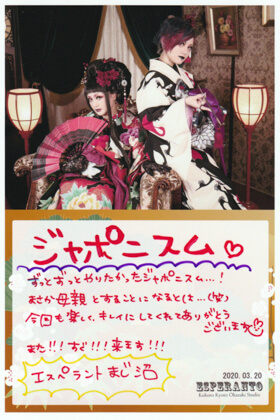 ジャポニスム♡
ずっとずっとやりたかったジャポニスム…!
まさか母親とすることになるとは…(笑)
今回も楽しく、キレイにしてくれてありがとう
ございます
また!!!すぐ!!!来ます!!!
エスペラントまじ沼
2020.03.20
ESPERANTO
Kokoro Kyoto Okazaki Studio